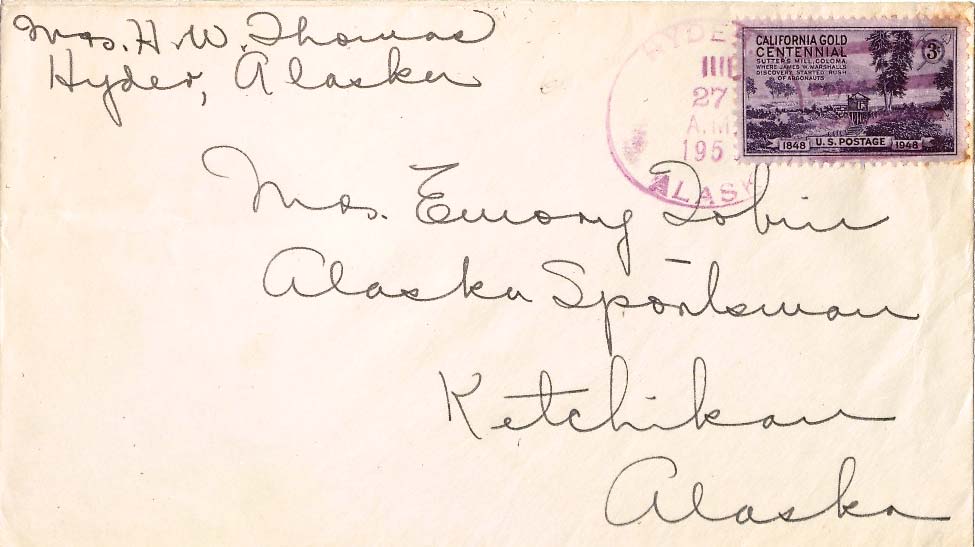 Mrs. H. W. Thomas
Hyder, Alaska
HYDE
27
A.M.
195
ALASK
CALIFORNIA GOLD
CENTENNIAL
SUTTER'S MILL, COLOMA
WHERE JAMES W. MARSHALL'S
DISCOVERY STARTED RUSH
OF ARGONAUTS
3¢
1848 U.S. POSTAGE 1948
Mrs. Emory Tobin
Alaska Sportsman
Ketchikan
Alaska